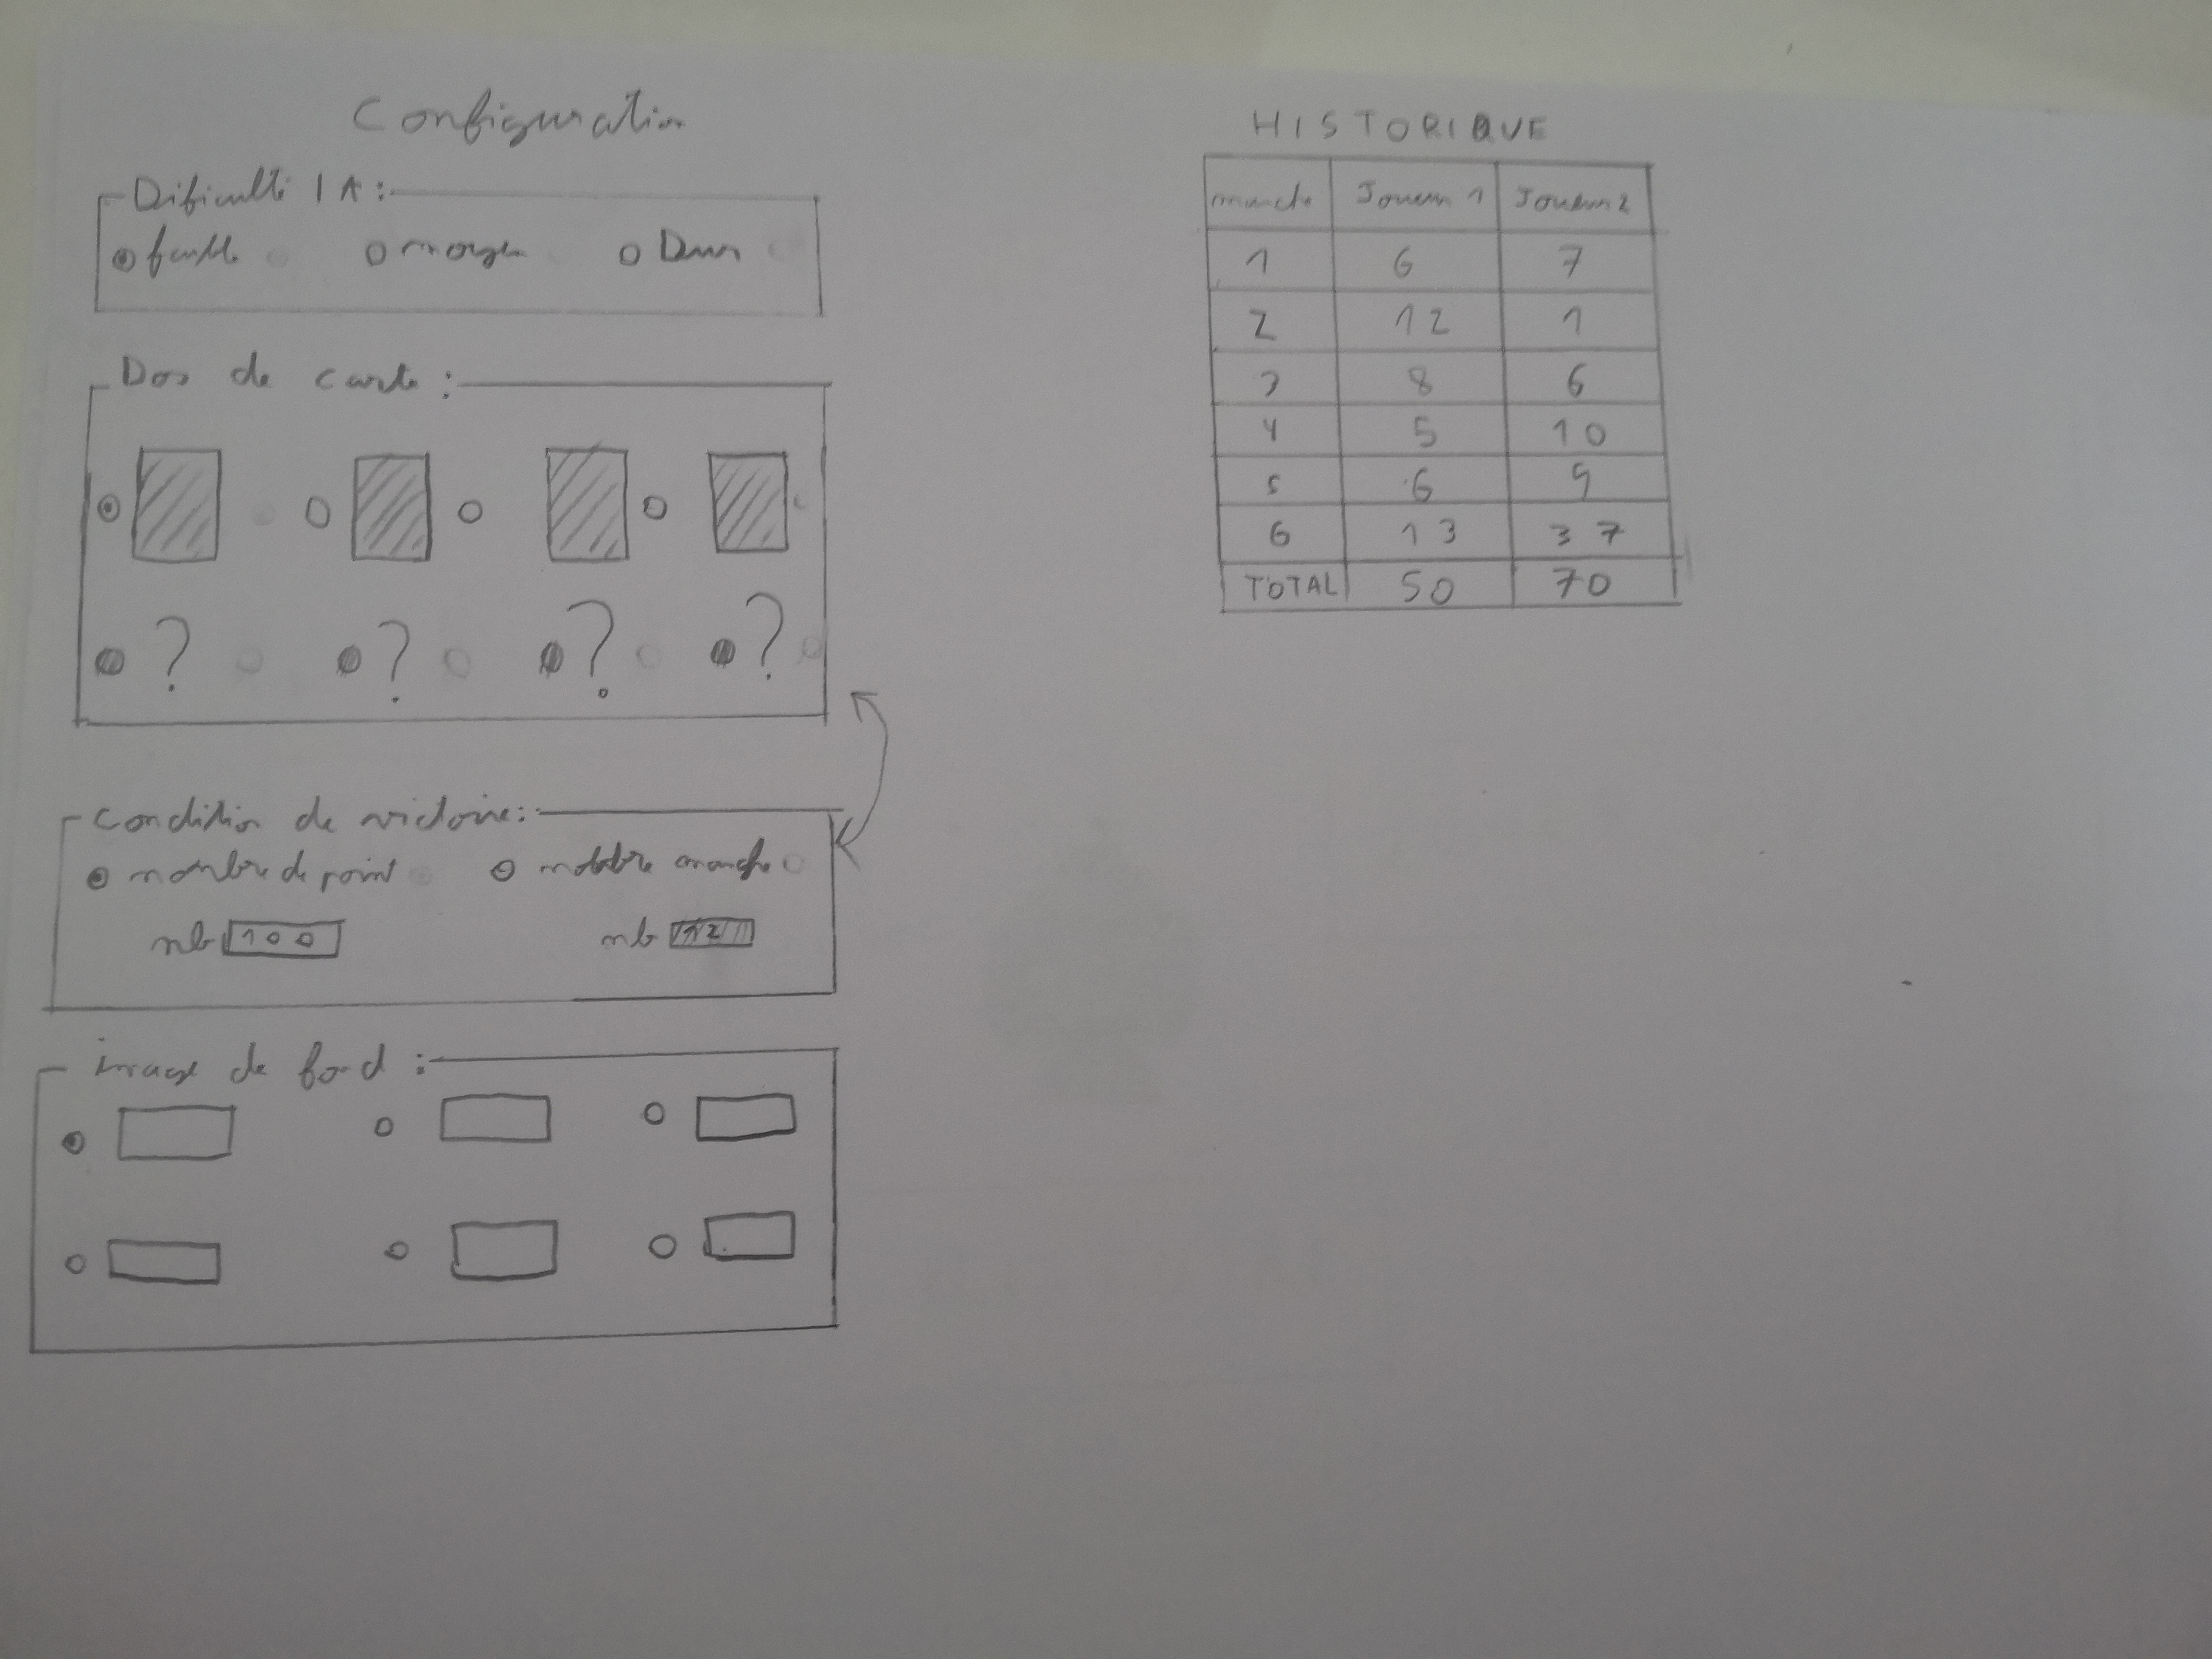 Configuration
Dificulté IA :
facile moyen Dur
Dos de carte :
? ? ? ?
Condition de victoire :
nombre de point nombre manche
nb 100 nb 12
image de fond :
HISTORIQUE
manche Joueur 1 Joueur 2
1 6 7
2 12 1
3 8 6
4 5 10
5 6 9
6 13 37
TOTAL 50 70